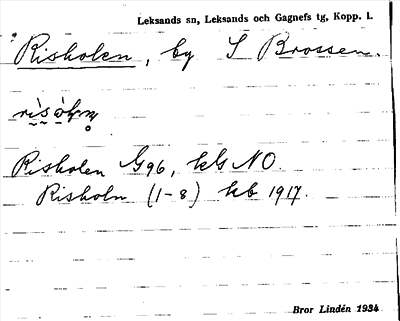 Leksands sn, Leksands och Gagnefs tg, Kopp. l.
Risholen, by S Brossen.
Risholen G96, kbl NO.
Risholn (1-8) kb 1917.
Bror Lindén 1934